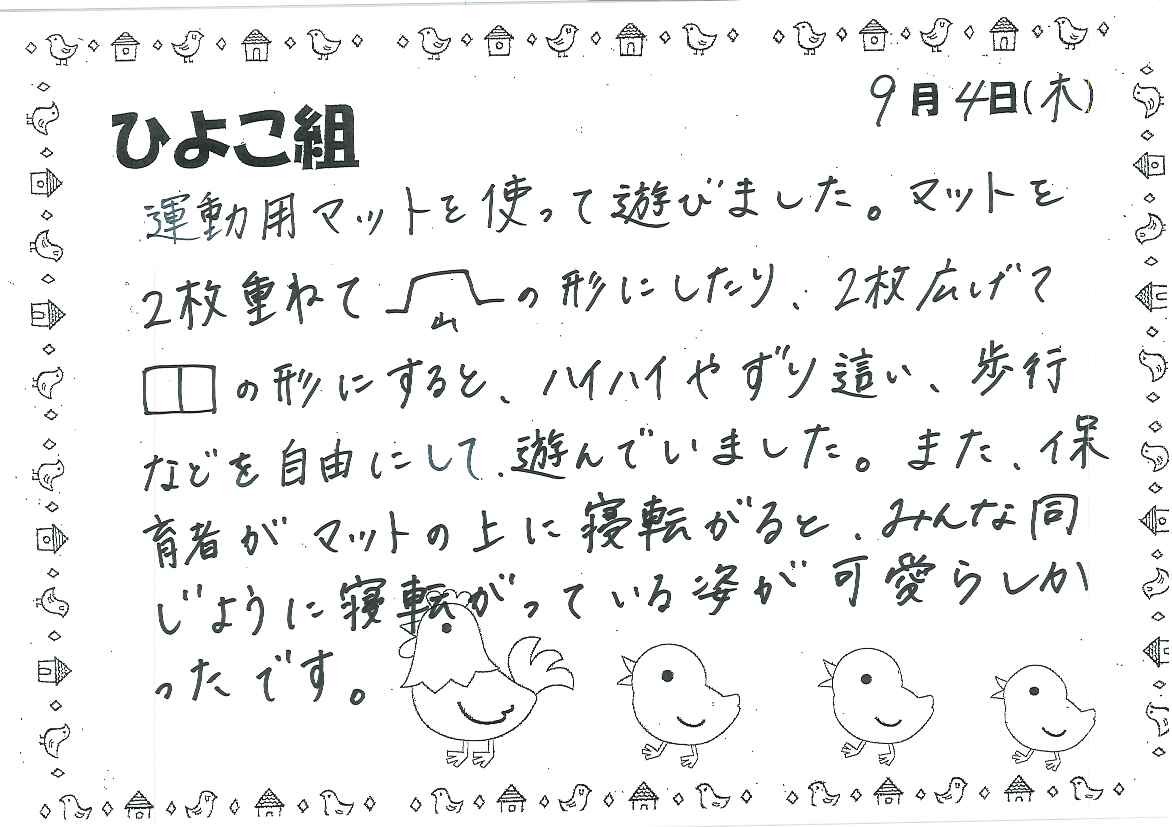 9月4日(木)
ひよこ組
運動用マットを使って遊びました。マットを
2枚重ねて山の形にしたり、2枚広げて
の形にすると、ハイハイやずり這い、歩行
などを自由にして、遊んでいました。また、保
育者がマットの上に寝転がると、みんな同
じように寝転がっている姿が可愛らしか
ったです。